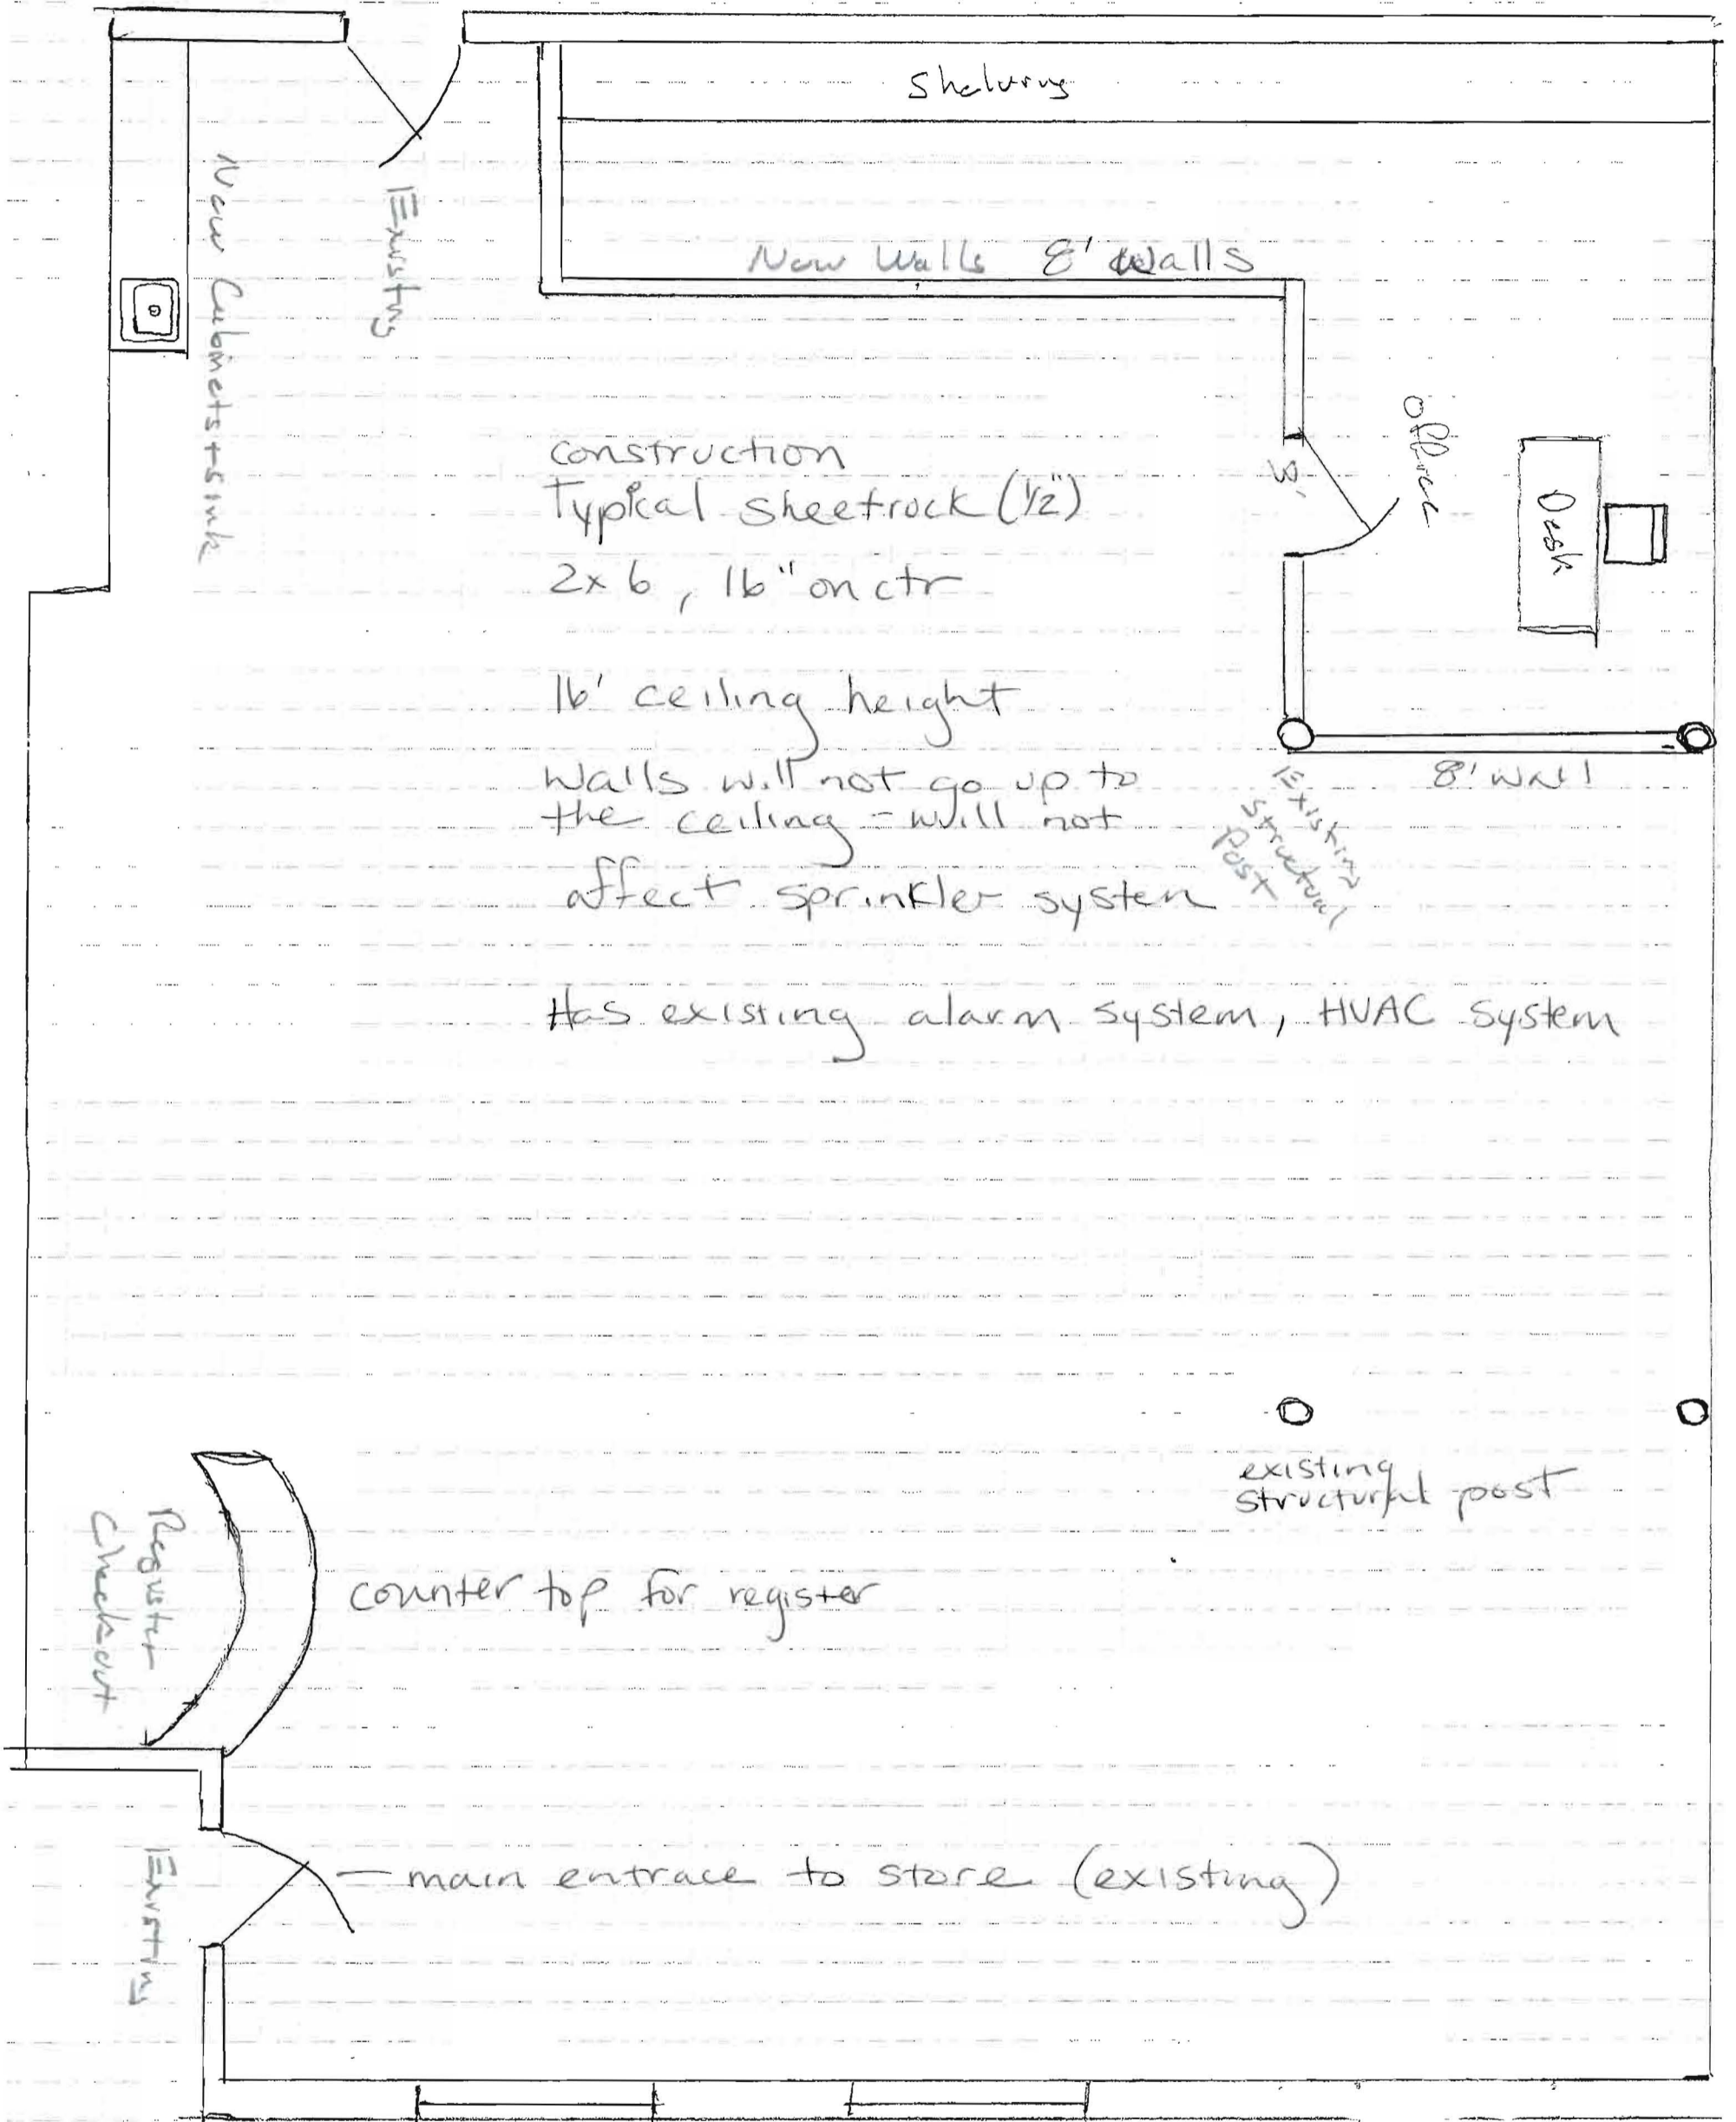 Shelving
New Cabinets + sink
Existing
New Walls 8' Walls
office
Desk
3'
construction
Typical sheetrock (1/2")
2x6, 16" on ctr
16' ceiling height
Walls will not go up to
the ceiling - will not
affect sprinkler system
Existing
structural
post
8' wall
Has existing alarm system, HVAC system
existing
structural post
Register
Checkout
counter top for register
Existing
— main entrace to store (existing)